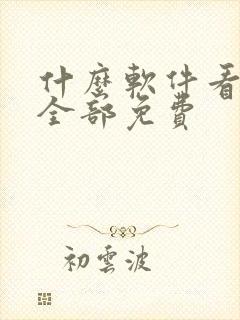 什麼軟件看
全部免費
初雲波